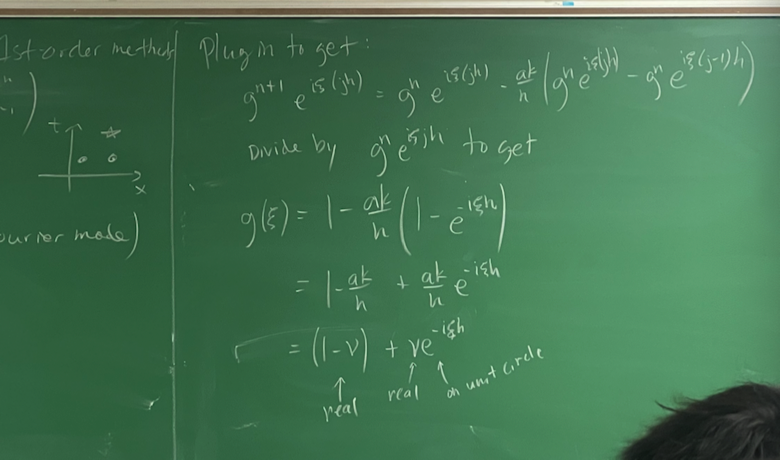 1st-order methods
t
x
ourier mode)
Plug in to get:
g^{n+1} e^{iξ(jh)} = g^n e^{iξ(jh)} - \frac{ak}{h} (g^n e^{iξ(jh)} - g^n e^{iξ(j-1)h})
Divide by g^n e^{iξjh} to get
g(ξ) = 1 - \frac{ak}{h} (1 - e^{-iξh})
= 1 - \frac{ak}{h} + \frac{ak}{h} e^{-iξh}
= (1-ν) + νe^{-iξh}
↑ real ↑ real ↑ on unit circle